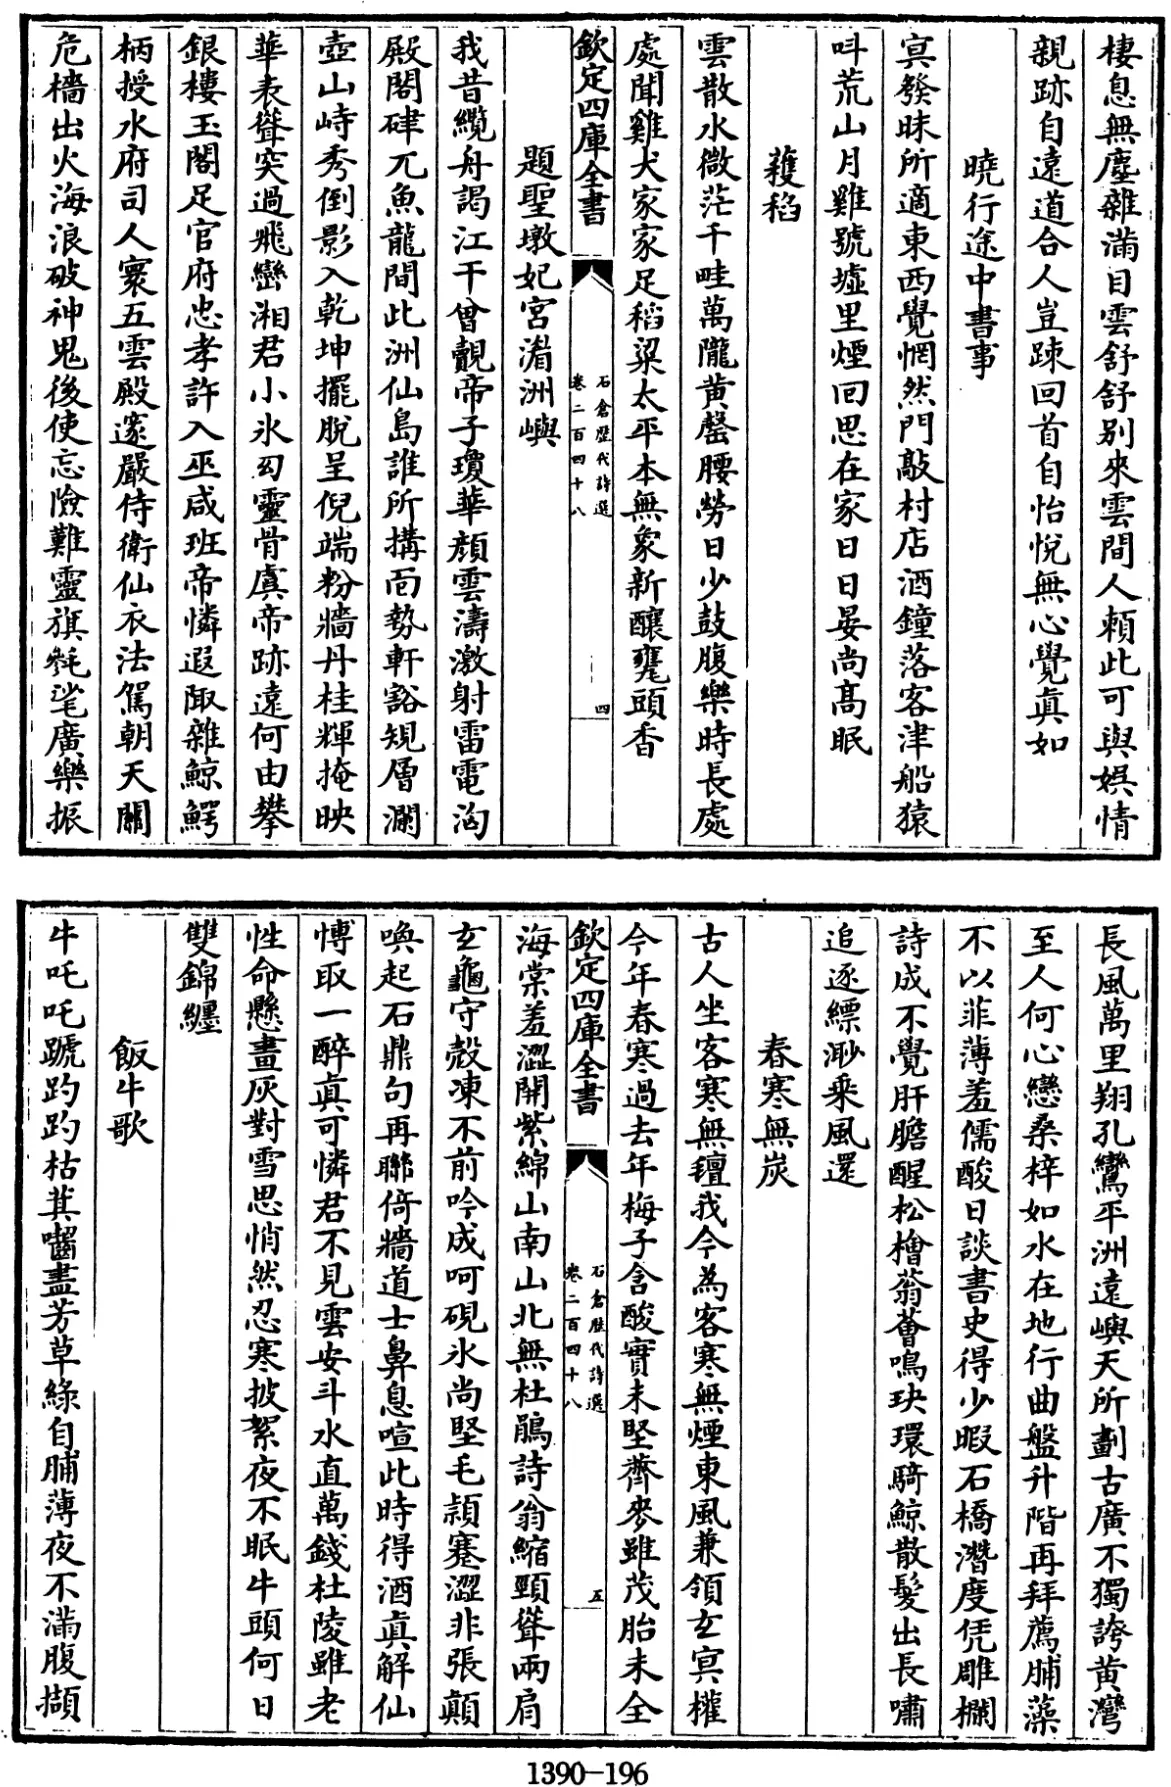 棲息無塵雜滿目雲舒舒别來雲間人頼此可與娯情
親跡自遠道合人豈踈回首自怡悦無心覺真如
曉行途中書事
㝠發昧所適東西覺惘然門敲村店酒鐘落客津船猿
呌荒山月雞號墟里煙回思在家日日晏尚髙眠
穫稻
雲散水微茫千畦萬隴黄罄腰勞日少鼓腹樂時長處
處聞雞犬家家足稻粱太平本無象新釀甕頭香
欽定四庫全書
石倉歷代詩選
卷二百四十八
四
題聖墩妃宮湄洲嶼
我昔纜舟謁江干曾覩帝子瓊華顔雲濤激射雷電洶
殿閣硉兀魚龍間此洲仙島誰所搆面勢軒豁規層瀾
壺山峙秀倒影入乾坤擺脱呈倪端粉牆丹桂輝掩映
華表聳突過飛巒湘君小氷幻靈骨虞帝跡遠何由攀
銀樓玉閣足官府忠孝許入巫咸班帝憐遐陬雜鯨鰐
柄授水府司人寰五雲殿邃嚴侍衛仙衣法駕朝天闗
危檣出火海浪破神鬼後使忘險難靈旗毵毿廣樂振
長風萬里翔孔鸞平洲遠嶼天所劃古廣不獨誇黄灣
至人何心戀桑梓如水在地行曲盤升階再拜薦脯藻
不以菲薄羞儒酸日談書史得少暇石橋濳度凭雕欄
詩成不覺肝膽醒松檜蓊薈鳴玦環騎鯨散髮出長嘯
追逐縹渺乗風還
春寒無炭
古人坐客寒無氊我今為客寒無煙東風兼領𤣥冥權
今年春寒過去年梅子含酸實未堅薺麥雖茂胎未全
欽定四庫全書
石倉歷代詩選
卷二百四十八
五
海棠羞澀開紫綿山南山北無杜鵑詩翁縮頸聳兩肩
𤣥龜守殻凍不前吟成呵硯氷尚堅毛頴蹇澀非張顛
喚起石鼎句再聨倚牆道士鼻息喧此時得酒真解仙
博取一醉真可憐君不見雲安斗水直萬錢杜陵雖老
性命懸畫灰對雪思悄然忍寒披絮夜不眠牛頭何日
雙錦纒
飯牛歌
牛吒吒蹏趵趵枯萁囓盡芳草緑自脯薄夜不滿腹擷
1390-196